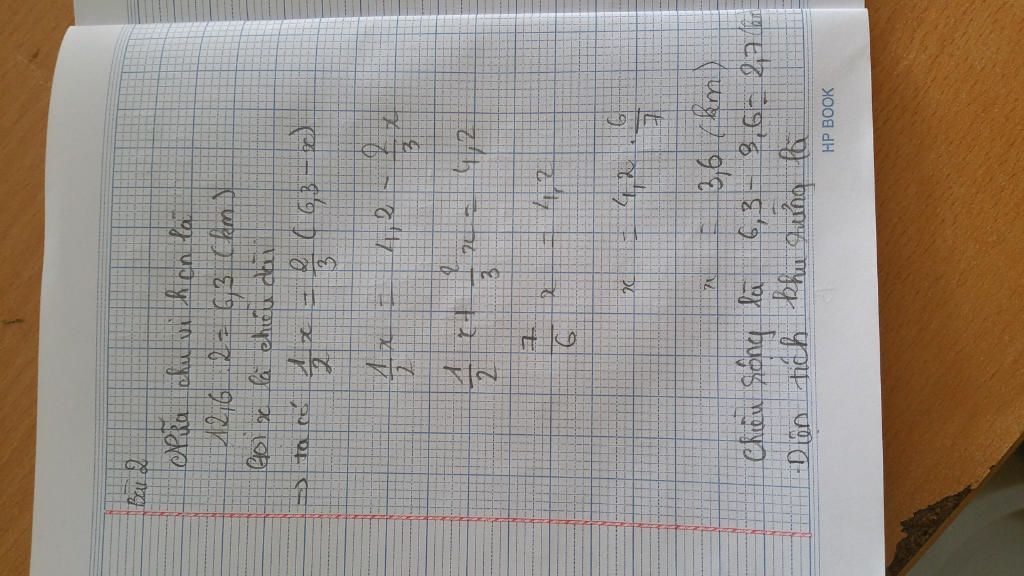 Bài 2
Nửa chu vi hcn là
12,6 . 2 = 6,3 (km)
Gọi x là chiều dài
→ ta có 1/2 x = 2/3 (6,3 - x)
1/2 x = 4,2 - 2/3 x
1/2 x + 2/3 x = 4,2
7/6 x = 4,2
x = 4,2 . 6/7
x = 3,6 (km)
Chiều rộng là 6,3 - 3,6 = 2,7 (km
Diện tích khu rừng là
HP BOOK